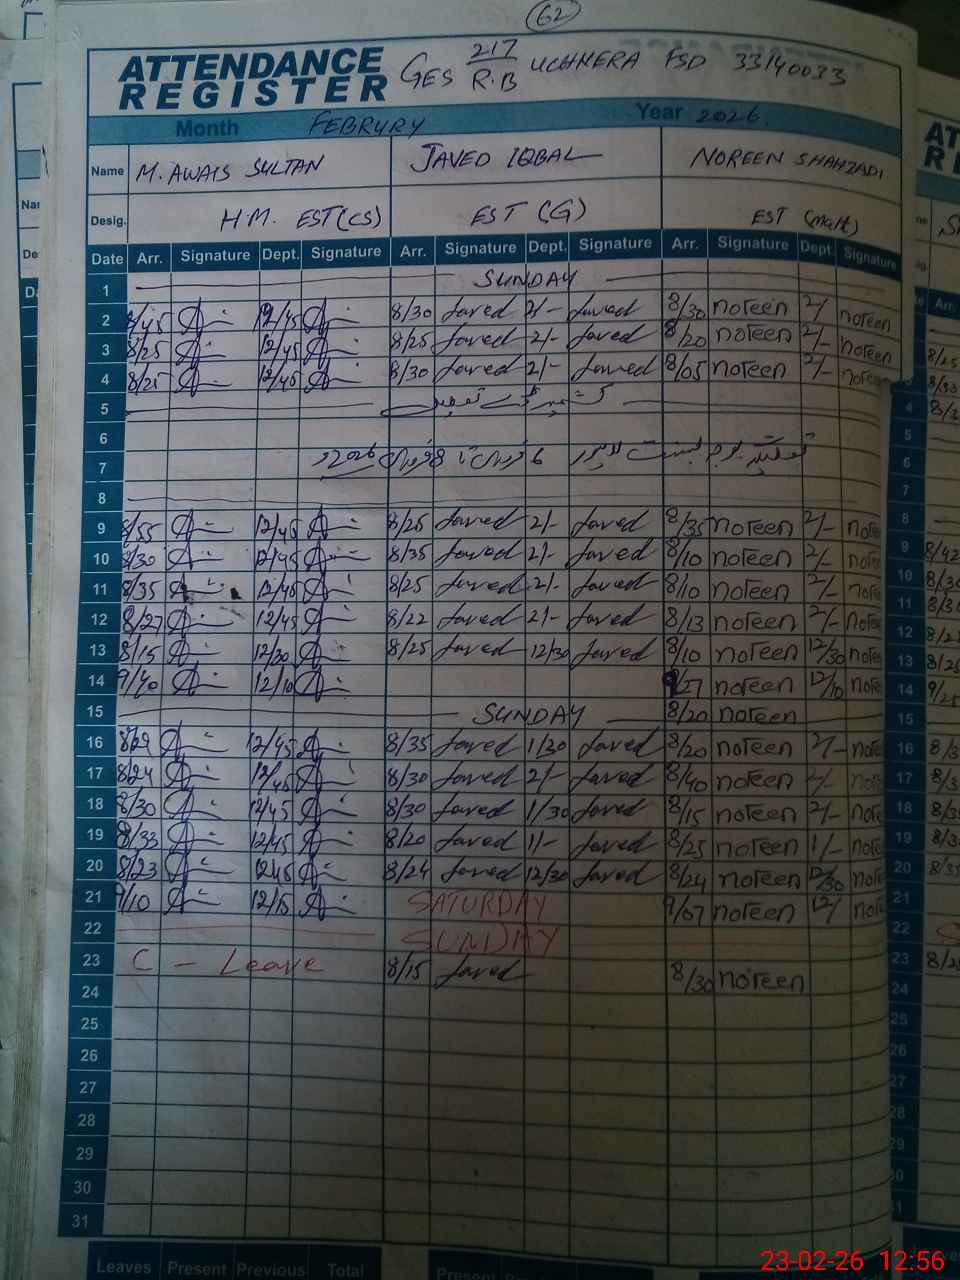 62
ATTENDANCE REGISTER GES 217/R.B UCHNERA FSD 33140033
Month FEBRURY Year 2026
Name M. AWAIS SULTAN JAVED IQBAL NOREEN SHAHZADI
Desig. H.M. EST(CS) EST (G) EST (Math)
Date Arr. Signature Dept. Signature Arr. Signature Dept. Signature Arr. Signature Dept. Signature
1 SUNDAY
2 8/45 12/45 8/30 Javed 2/- Javed 8/30 noreen 2/ noreen
3 8/25 12/45 8/25 Javed 2/- Javed 8/20 noreen 2/- noreen
4 8/25 12/45 8/30 Javed 2/- Javed 8/05 noreen 2/- noreen
5
6
7 6 فروری تا 8 فروری 2026
8
9 8/55 12/45 8/25 Javed 2/- Javed 8/35 noreen 2/- nore
10 8/30 12/45 8/35 Javed 2/- Javed 8/10 noreen 2/- nore
11 8/35 12/45 8/25 Javed 2/- Javed 8/10 noreen 2/- nore
12 8/27 12/45 8/22 Javed 2/- Javed 8/13 noreen 2/- nore
13 8/15 12/30 8/25 Javed 12/30 Javed 8/10 noreen 12/30 nore
14 9/40 12/10 9/27 noreen 12/10 nore
15 SUNDAY 8/20 noreen
16 8/29 12/45 8/35 Javed 1/30 Javed 8/20 noreen 2/- nore
17 8/24 12/45 8/30 Javed 2/- Javed 8/40 noreen 2/- nore
18 8/30 12/45 8/30 Javed 1/30 Javed 8/15 noreen 2/- nore
19 8/33 12/45 8/20 Javed 1/- Javed 8/25 noreen 1/- nore
20 8/23 12/45 8/24 Javed 12/30 Javed 8/24 noreen 12/30 nore
21 9/10 12/15 SATURDAY 9/07 noreen 12/ nore
22 SUNDAY
23 C - Leave 8/15 Javed 8/30 noreen
24
25
26
27
28
29
30
31
Leaves Present Previous Total Present
23-02-26 12:56